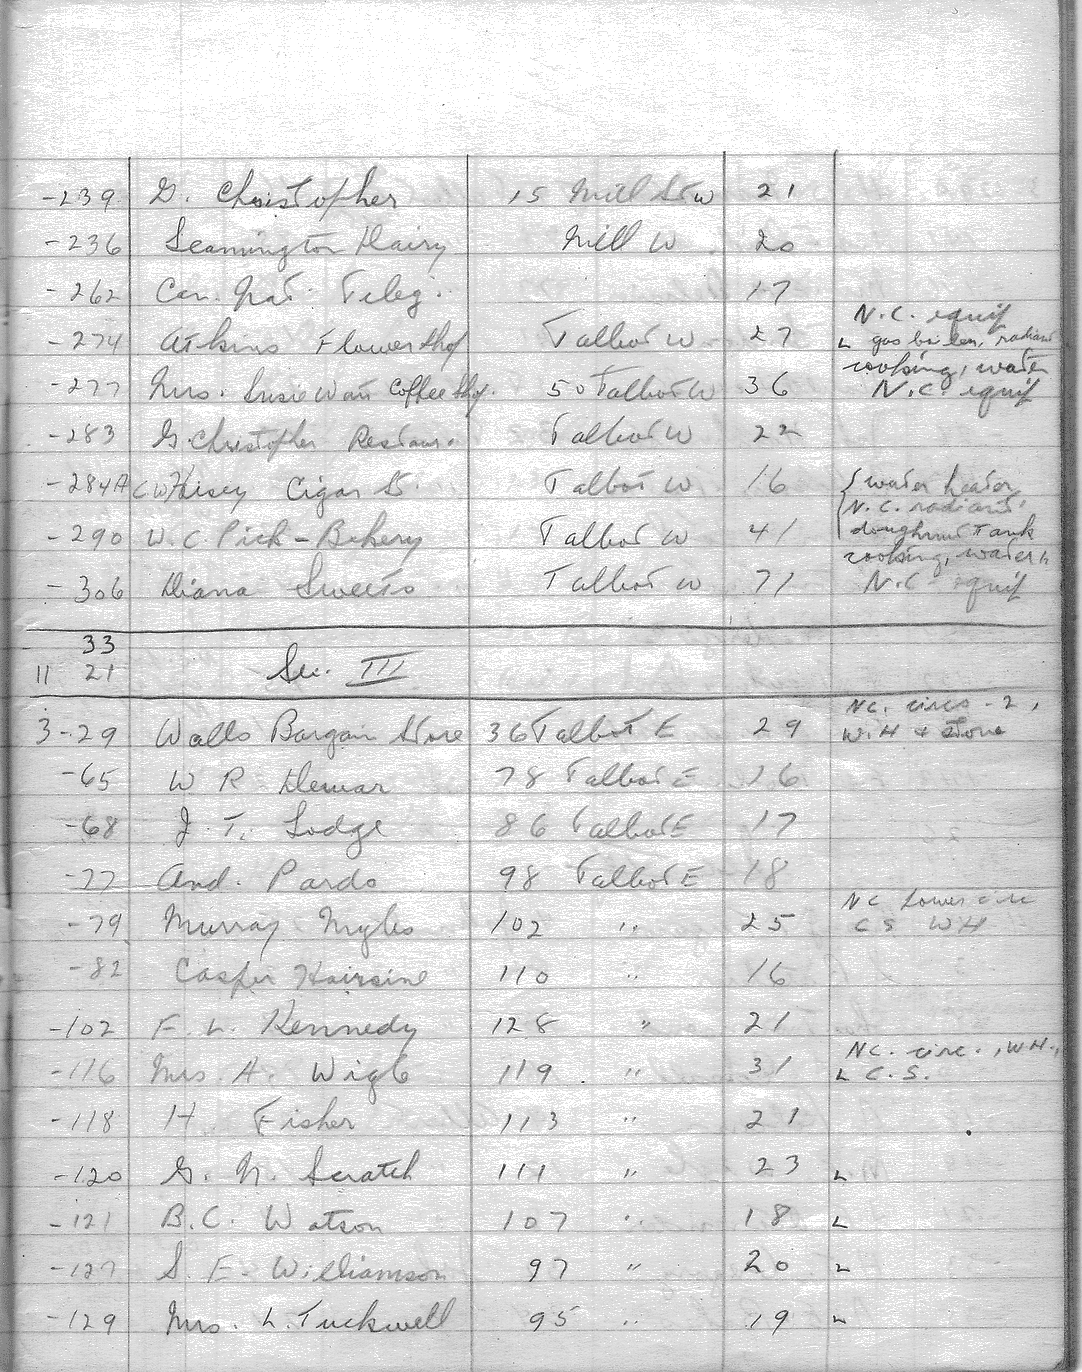 -239 G. Christopher 15 Mill St W 21
-236 Leamington Dairy Mill W 20
-262 Can. Nat. Teleg. 17
N.C. equip
-274 Atkins Flower Shop Talbot W 27 L gas boiler, radiant
cooking, water
-277 Mrs. Susie Watt Coffee Shop. 50 Talbot W 36 N.C. equip
-283 G. Christopher Restaur. Talbot W 22
-284A C W Hisey Cigar St. Talbot W 16 water heater,
N.C. radiant,
-290 W. C. Pick - Bakery Talbot W 41 doughnut Tank
cooking, water h
-306 Diana Sweets Talbot W 71 N.C. equip
33
11 21 Sec. III
NC. circs - 2,
3-29 Walls Bargain Store 36 Talbot E 29 W.H + Store
-65 W R Dewar 78 Talbot E 16
-68 J. T. Lodge 86 Talbot E 17
-77 And. Pardo 98 Talbot E 18
NC Lower circ
-79 Murray Myles 102 " 25 C S WH
-82 Casper Hairsine 110 " 16
-102 F. L. Kennedy 128 " 21
NC. circ., WH.,
-116 Mrs A. Wigle 119 " 31 L C.S.
-118 H. Fisher 113 " 21
-120 G. N. Scratch 111 " 23 L
-121 B.C. Watson 107 " 18 L
-127 S. E. Williamson 97 " 20 L
-129 Mrs. L. Tuckwell 95 " 19 L